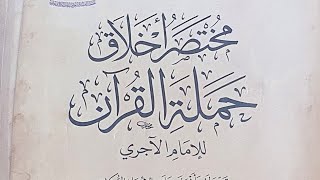 مختصر أخلاق
حملة القرآن
للإمام الآجري